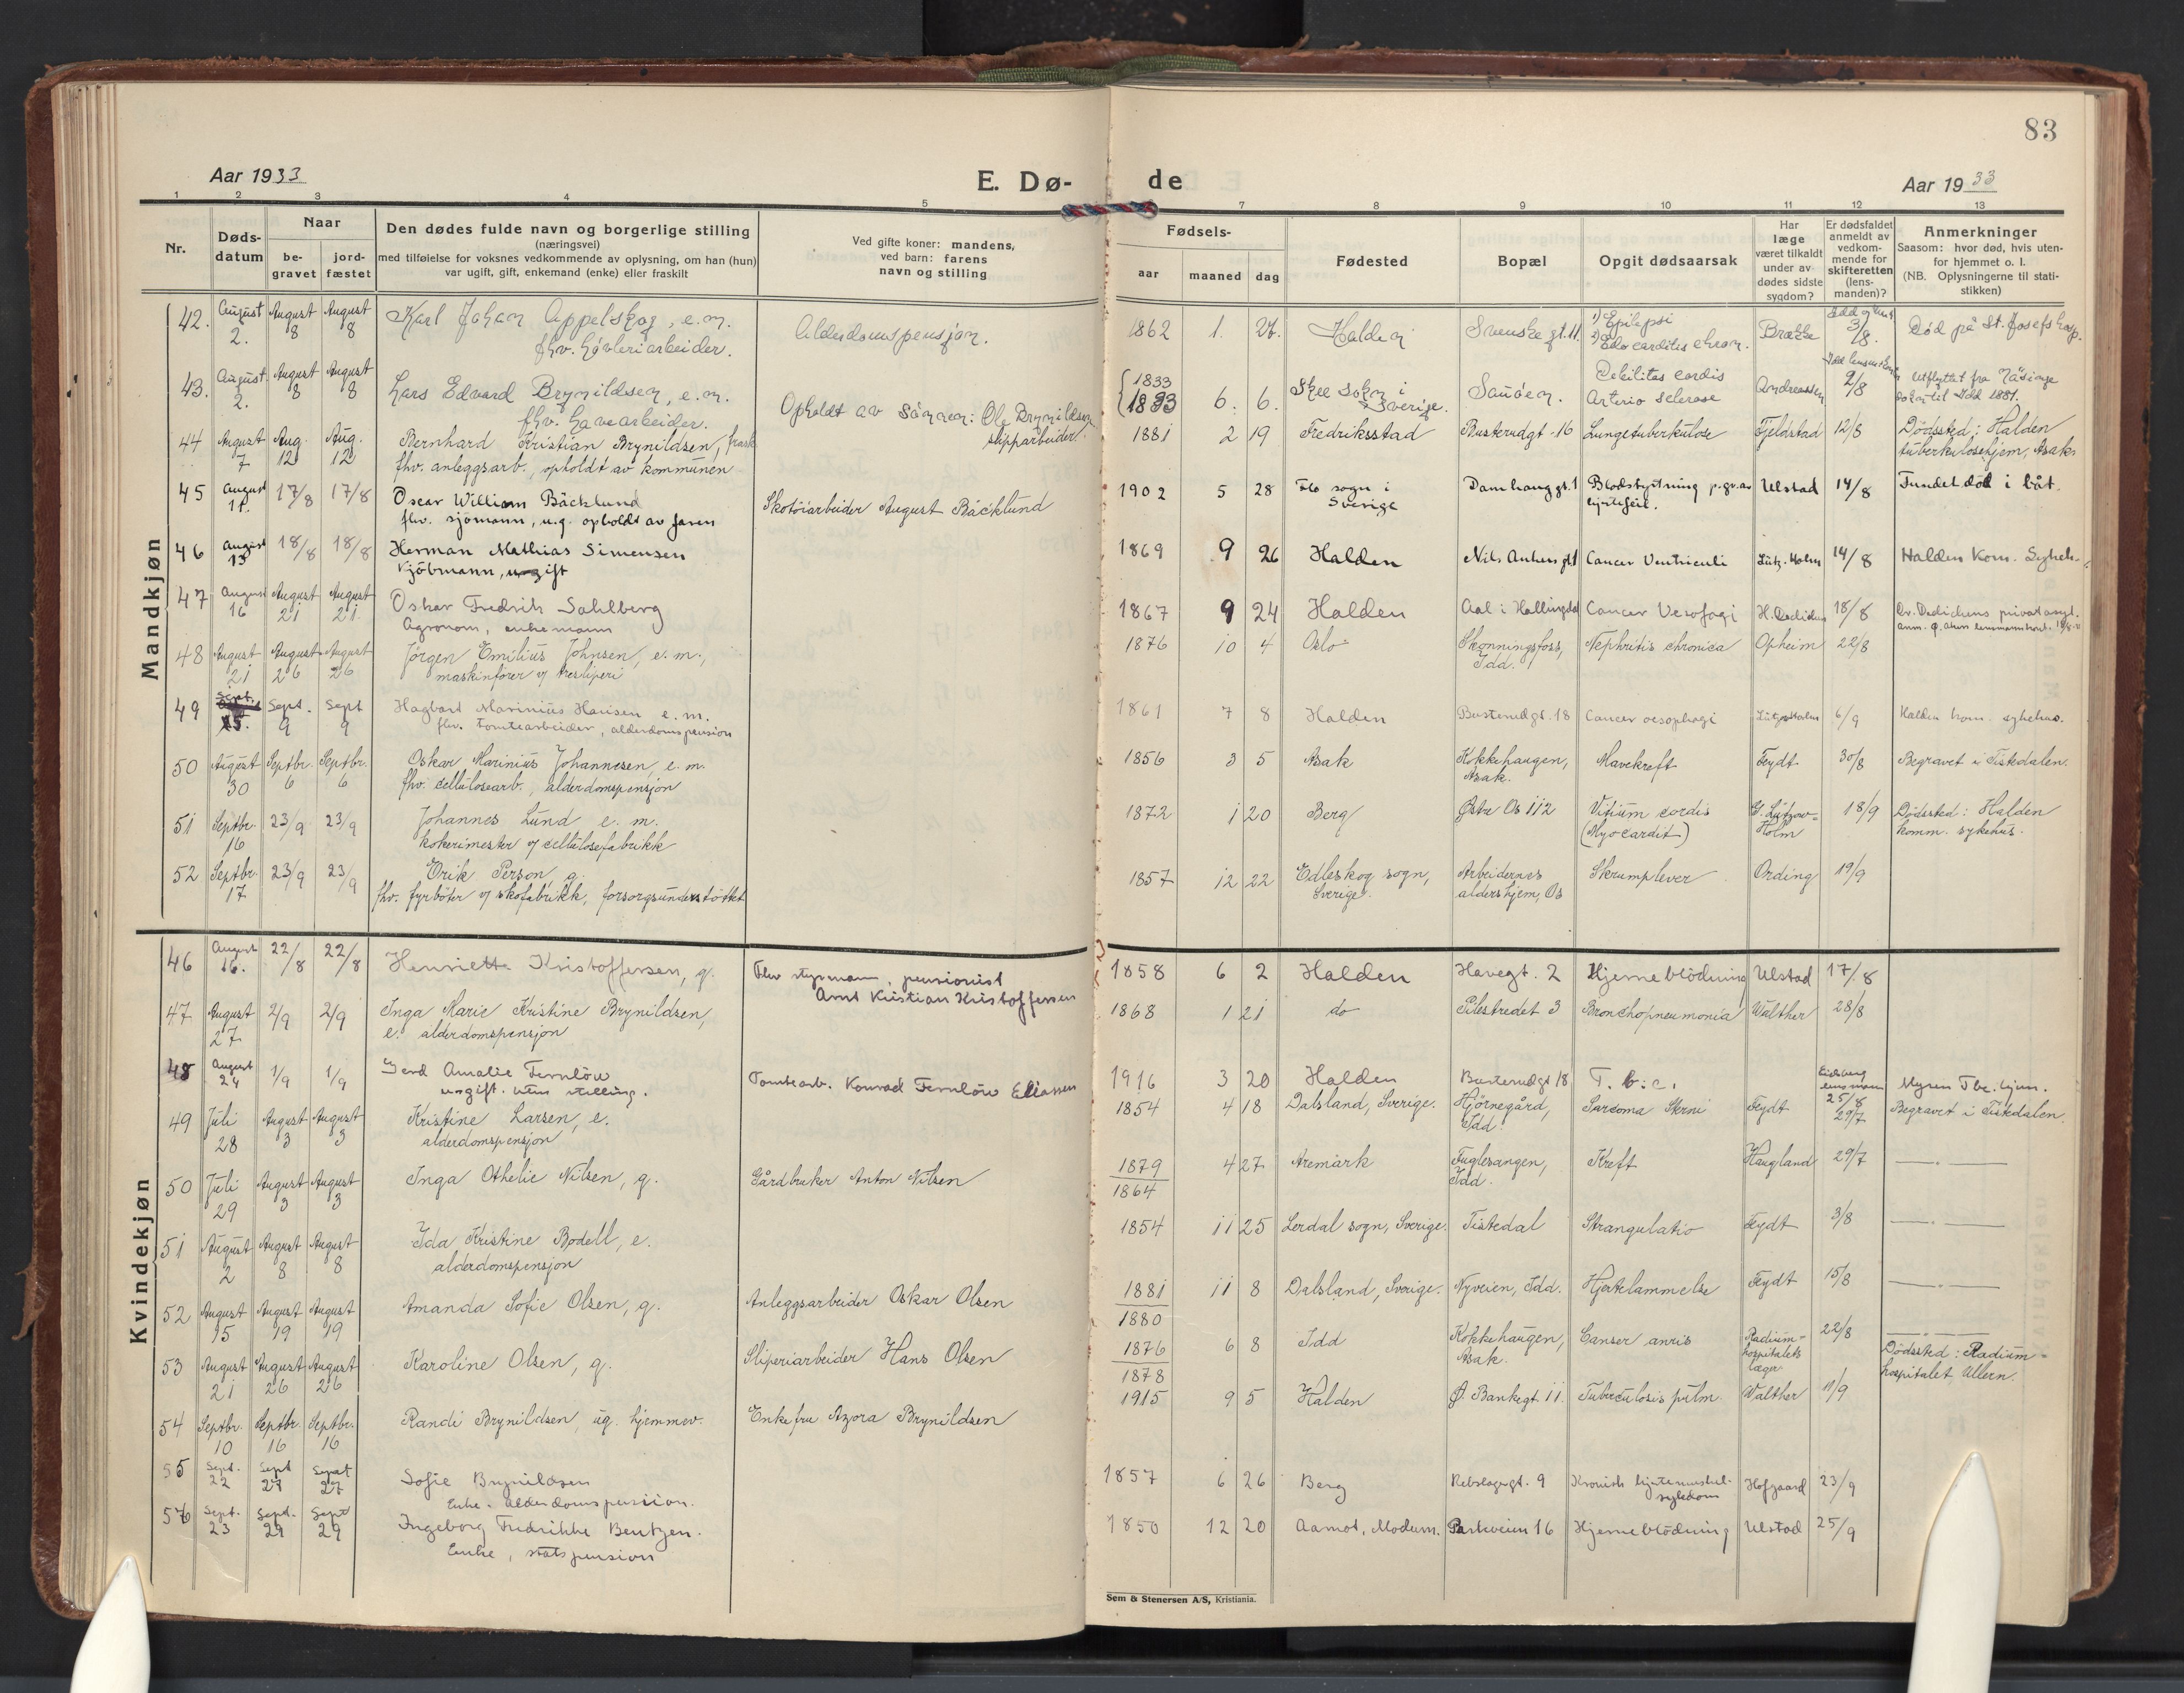 83
Aar 1933
E. Dø-
de
Aar 1933
1 2 3 4 5 7 8 9 10 11 12 13
Nr.
Døds-
datum
Naar
be-
gravet
jord-
fæstet
Den dødes fulde navn og borgerlige stilling
(næringsvei)
med tilføielse for voksnes vedkommende av oplysning, om han (hun)
var ugift, gift, enkemand (enke) eller fraskilt
Ved gifte koner: mandens,
ved barn: farens
navn og stilling
Fødsels-
aar maaned dag
Fødested
Bopæl
Opgit dødsaarsak
Har
læge
været tilkaldt
under av-
dødes sidste
sygdom?
Er dødsfaldet
anmeldt av
vedkom-
mende for
skifteretten
(lens-
manden)?
Anmerkninger
Saasom: hvor død, hvis uten-
for hjemmet o. l.
(NB. Oplysningerne til stati-
stikken)
Mandkjøn
42. August 2. August 8 August 8 Karl Johan Appelskog, e.m. fhv. høvleriarbeider. Alderdomspensjon. 1862 1. Halden Svenskegt. 11. 1) Epilepsi 2) Brække 3/8. Død på St. Josefs hosp.
43. August 2. August 8 August 8 Lars Edvard Brynildsen, e.m. fhv. havearbeider. Opholdt av sønnen: Ole Brynildsen slipparbeider. 1833 1833 6. 6. Skee sokn i Sverige. Sauøen. Debilitas cordis Arterio sclerose Andreassen 2/8 Utflyttet fra sokn til Idd 1881.
44 August 7 Aug. 12 Aug. 12 Bernhard Kristian Brynildsen, frask. fhv. anleggsarb., opholdt av kommunen 1881 2 19 Fredriksstad Busterudgt. 16 Lungetuberkulose Fjeldstad 12/8 Dødssted: Halden tuberkulosehjem, Asak
45 August 11. 17/8 17/8 Oscar William Bäcklund fhv. sjømann, u.g. opholdt av faren Skotøiarbeider August Bäcklund 1902 5 28 Flo sogn i Sverige Damhauggt. 1 Blodstyrtning p.gr.av hjertefeil. Ulstad 14/8 Fundet død i båt.
46 August 13 18/8 18/8 Herman Mathias Simensen kjøbmann, ugift 1869 9 26 Halden Nils Ankersgt. 1 Cancer Ventriculi Lütz. Holm 14/8 Halden Kom. Sykeh.
47 August 16 August 21 August 21. Oskar Fredrik Sahlberg Agronom, enkemann 1867 9 24 Halden Aal i Hallingdal Cancer Oesofagi H. Dedichen 18/8 Dr. Dedichens privatasyl.
48 August 21 August 26 August 26 Jørgen Emilius Johnsen, e.m., maskinfører v/ tresliperi 1876 10 4 Oslo Skonningsfoss, Idd. Nephritis chronica Opheim 22/8
49 Sept. 5. Sept. 9 Sept 9 Hagbart Marinius Hansen e.m. fhv. tomtearbeider, alderdomspension 1861 7 8 Halden Busterudgt. 18 Cancer oesophagi Lützow Holm 6/9 Halden kom. sykehus.
50 August 30 Septbr. 6 Septbr. 6 Oskar Marinius Johannesen, e.m. fhv. cellulosearb., alderdomspensjon 1856 3 5 Asak Kokkehaugen, Asak. Mavekreft Feydt 30/8 Begravet i Tistedalen.
51 Septbr. 16 23/9 23/9 Johannes Lund e.m. kokerimester v/ cellulosefabrikk 1872 1 20 Berg Østre Os 112 Vitium cordis (Myocardit) G. Lützow-Holm 18/9 Dødssted: Halden komm. sykehus.
52 Septbr. 17 23/9 23/9 Erik Person, g. fhv. fyrbøter v/ skofabrikk, forsorgsunderstøttet 1857 12 22 Edleskog sogn, Sverige. Arbeidernes aldershjem, Os Skrumplever Ording 19/9
Kvindekjøn
46 August 16. 22/8 22/8 Henriette Kristoffersen, g. Fhv styrmann, pensionist Arnt Kristian Kristoffersen 1858 6 2 Halden Havegt. 2 Hjerneblødning Ulstad 17/8
47 August 27 2/9 2/9 Inga Marie Kristine Brynildsen, e. alderdomspensjon 1868 1 21 do Pilestredet 3 Bronchopneumonia Walther 28/8
48 August 24 1/9 1/9 Gerd Amalie Fernløw ungift. uten stilling. Tomtearb. Konrad Fernlöw Eliassen 1916 3 20 Halden Busterudgt 18 T. b. c. Eidsberg lensmann 25/8 Mysen Tbc. hjem.
49 Juli 28 August 3 August 3 Kristine Larsen, e. alderdomspensjon 1854 4 18 Dalsland, Sverige. Hjørnegård, Idd. Sarcoma Feydt 29/7 Begravet i Tistedalen.
50 Juli 29 August 3 August 3 Inga Othelie Nilsen, g. Gårdbruker Anton Nilsen 1879 1864 4 27 Aremark Fuglesangen, Idd. Kreft Haugland 29/7 —„—
51 August 2 August 8 August 8 Ida Kristine Bodell, e. alderdomspensjon 1854 11 25 Lerdal sogn, Sverige. Tistedal Strangulatio Feydt 3/8 —„—
52 August 15 August 19 August 19 Amanda Sofie Olsen, g. Anleggsarbeider Oskar Olsen 1881 1880 11 8 Dalsland, Sverige. Nyveien, Idd. Hjertelammelse Feydt 15/8 —„—
53 August 21 August 26 August 26 Karoline Olsen, g. Sliperiarbeider Hans Olsen 1876 1878 6 8 Idd Kokkehaugen, Asak. Canser Radium-hospitalets læger 22/8 —„— Dødssted: Radium-hospitalet Ullern.
54 Septbr. 10 Septbr. 16 Septbr. 16 Randi Brynildsen, ug. hjemmev. Enkefru Azora Brynildsen 1915 9 5 Halden Ø. Bankegt. 11. Tuberculosis pulm. Walther 11/9
55 Sept. 22 Sept 27 Sept 27 Sofie Brynildsen Enke. alderdomspension. 1857 6 26 Berg Rebslagergt. 9 Kronisk hjertemuskel-sykdom Hofgaard 23/9
56 Sept. 23 Sept. 29 Sept 29 Ingeborg Fredrikke Bentzen. Enke, statspension 1850 12 20 Aamot, Modum. Parkveien 16 Hjerneblødning Ulstad 25/9
Sem & Stenersen A/S, Kristiania.